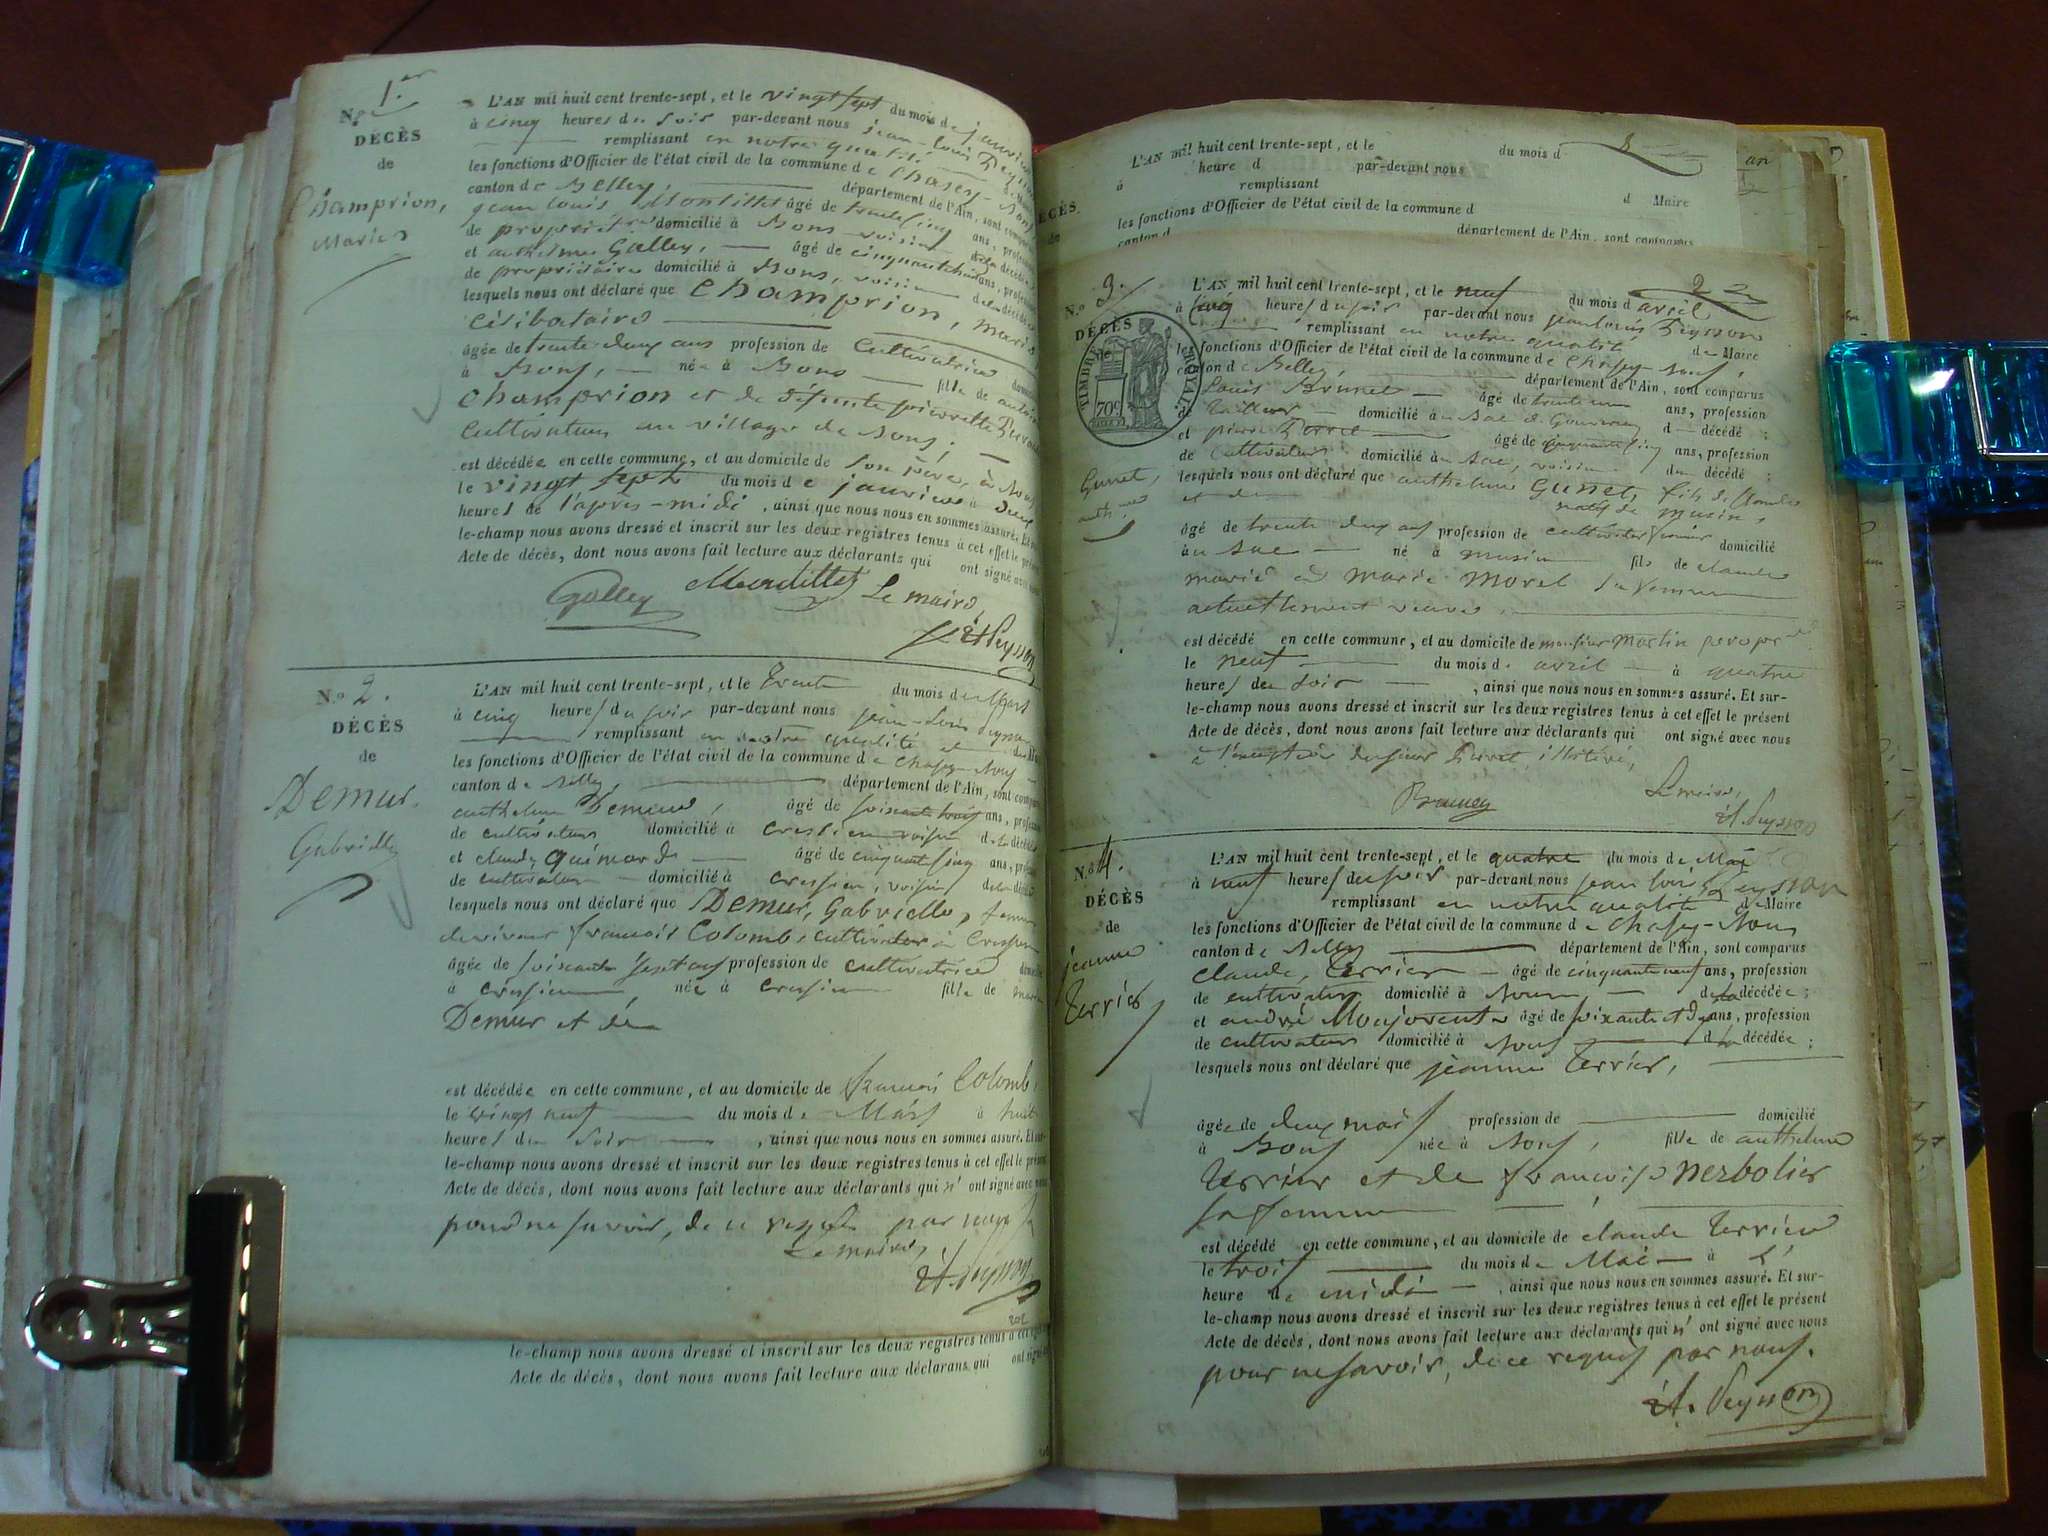 N.o 1.er
DÉCÈS
de
Champrion,
Marie
L'AN mil huit cent trente-sept, et le vingt sept du mois de janvier
à cinq heures du soir par-devant nous jean-louis Peysson
remplissant en notre qualité
les fonctions d'Officier de l'état civil de la commune de Chasey-Bons
canton de Belley département de l'Ain, sont comparus
jean Louis Montillet âgé de trente cinq ans, profession
de propriétaire domicilié à Bons voisin de la décédée
et anthelme Galley, âgé de ans, profession
de propriétaire domicilié à Bons, voisin de la décédée
lesquels nous ont déclaré que Champrion, marie
célibataire
âgée de trente deux ans profession de cultivatrice
à Bons, née à Bons fille de
Champrion et de défunte pierrette
cultivateur au village de Bons,
est décédée en cette commune, et au domicile de son père, à Bons
le vingt sept du mois de janvier à deux
heures de l'après-midi, ainsi que nous nous en sommes assuré. Et sur
le-champ nous avons dressé et inscrit sur les deux registres tenus à cet effet le présent
Acte de décès, dont nous avons fait lecture aux déclarants qui ont signé avec
Galley Montillet Le maire,
Peysson
N.o 2.
DÉCÈS
de
Demur.
Gabrielle
L'AN mil huit cent trente-sept, et le trente du mois de Mars
à cinq heures du soir par-devant nous jean-Louis Peysson
remplissant en notre qualité
les fonctions d'Officier de l'état civil de la commune de Chasey-Bons
canton de Belley, département de l'Ain, sont comparus
anthelme Demeur, âgé de soixante trois ans, profession
de cultivateur domicilié à Cressieu voisin de la décédée
et claude âgé de cinquante cinq ans, profession
de cultivateur domicilié à cressieu, voisin de la
lesquels nous ont déclaré que Demur, Gabrielle, femme
françois Colomb, cultivateur à Cressieu
âgée de soixante sept ans profession de cultivatrice domicilié
à cressieu née à cressieu fille de
Demur et de
est décédée en cette commune, et au domicile de françois Colomb,
le vingt neuf du mois de Mars à huit
heures du soir, ainsi que nous nous en sommes assuré. Et sur-
le-champ nous avons dressé et inscrit sur les deux registres tenus à cet effet le présent
Acte de décès, dont nous avons fait lecture aux déclarants qui n' ont signé avec nous
pour ne savoir, de ce requis par nous
Le maire,
Peysson
le-champ nous avons dressé et inscrit sur les deux registres tenus à cet
Acte de décès, dont nous avons fait lecture aux déclarans qui ont signé
DÉCÈS
L'AN mil huit cent trente-sept, et le du mois d
à heure d par-devant nous
remplissant d Maire
les fonctions d'Officier de l'état civil de la commune d
canton d département de l'Ain, sont comparus
N.o 3.
DÉCÈS
de
TIMBRE ROYAL.
70c
Gunet,
anth.me
L'AN mil huit cent trente-sept, et le neuf du mois d avril
à cinq heures du soir par-devant nous jean louis Peysson
remplissant en notre qualité de Maire
les fonctions d'Officier de l'état civil de la commune de Chasey-Bons,
canton de Belley, département de l'Ain, sont comparus
Louis Brunet âgé de trente ans, profession
de domicilié d décédé ;
et pierre âgé de cinquante cinq ans, profession
de cultivateur domicilié au Sac, voisin du décédé ;
lesquels nous ont déclaré que anthelme Gunet, fils de Claude
et de natif de musin,
âgé de trente deux ans profession de cultivateur domicilié
au Sac né à musin fils de claude
marié à marie morel sa femme
actuellement veuve,
est décédé en cette commune, et au domicile de monsieur Martin
le neuf du mois d avril à quatre
heures du soir, ainsi que nous nous en sommes assuré. Et sur-
le-champ nous avons dressé et inscrit sur les deux registres tenus à cet effet le présent
Acte de décès, dont nous avons fait lecture aux déclarants qui ont signé avec nous
à l'exception du sieur illitéré,
Le maire,
Peysson
N.o 4.
DÉCÈS
de
jeanne
terrier
L'AN mil huit cent trente-sept, et le quatre du mois de Mai
à neuf heures du soir par-devant nous jean louis Peysson
remplissant en notre qualité de Maire
les fonctions d'Officier de l'état civil de la commune de Chasey-Bons
canton de Belley département de l'Ain, sont comparus
claude, terrier âgé de cinquante neuf ans, profession
de cultivateur domicilié à Bons de la décédée ;
et andré âgé de soixante et ans, profession
de cultivateur domicilié à Bons d la décédée ;
lesquels nous ont déclaré que jeanne terrier,
âgée de deux mois profession de domicilié
à Bons née à Bons, fille de anthelme
terrier et de françoise nerbolier
sa femme
est décédé en cette commune, et au domicile de claude terrier
le trois du mois de Mai à l'
heure de midi, ainsi que nous nous en sommes assuré. Et sur-
le-champ nous avons dressé et inscrit sur les deux registres tenus à cet effet le présent
Acte de décès, dont nous avons fait lecture aux déclarants qui n' ont signé avec nous
pour ne savoir, de ce requis par nous.
Peysson